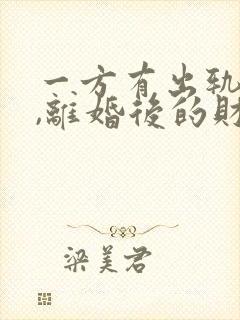 一方有出轨
,離婚後的財
梁美君